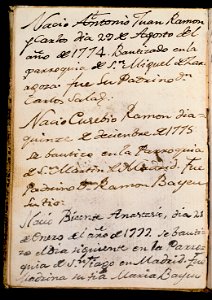 Nacio Antonio Juan Ramon
y Carlos dia 29 de Agosto del
año de 1774. Bautizado en la
parroquia de Sn. Miguel de Zara
goza: fue su Padrino Dn
Carlos Salas.
Nacio Eusebio Ramon dia
quince de diciembre de 1775
se bautizo en la Parroquia
de Sn Martin de Madrid. fue
Padrino Dn Ramon Bayeu
su tio.
Nacio Vicente Anastasio, dia 21
de Enero del año de 1777. se bauti
zo el dia siguiente en la Parro
quia de Stiago en Madrid. fue
Madrina su tia Maria Bayeu